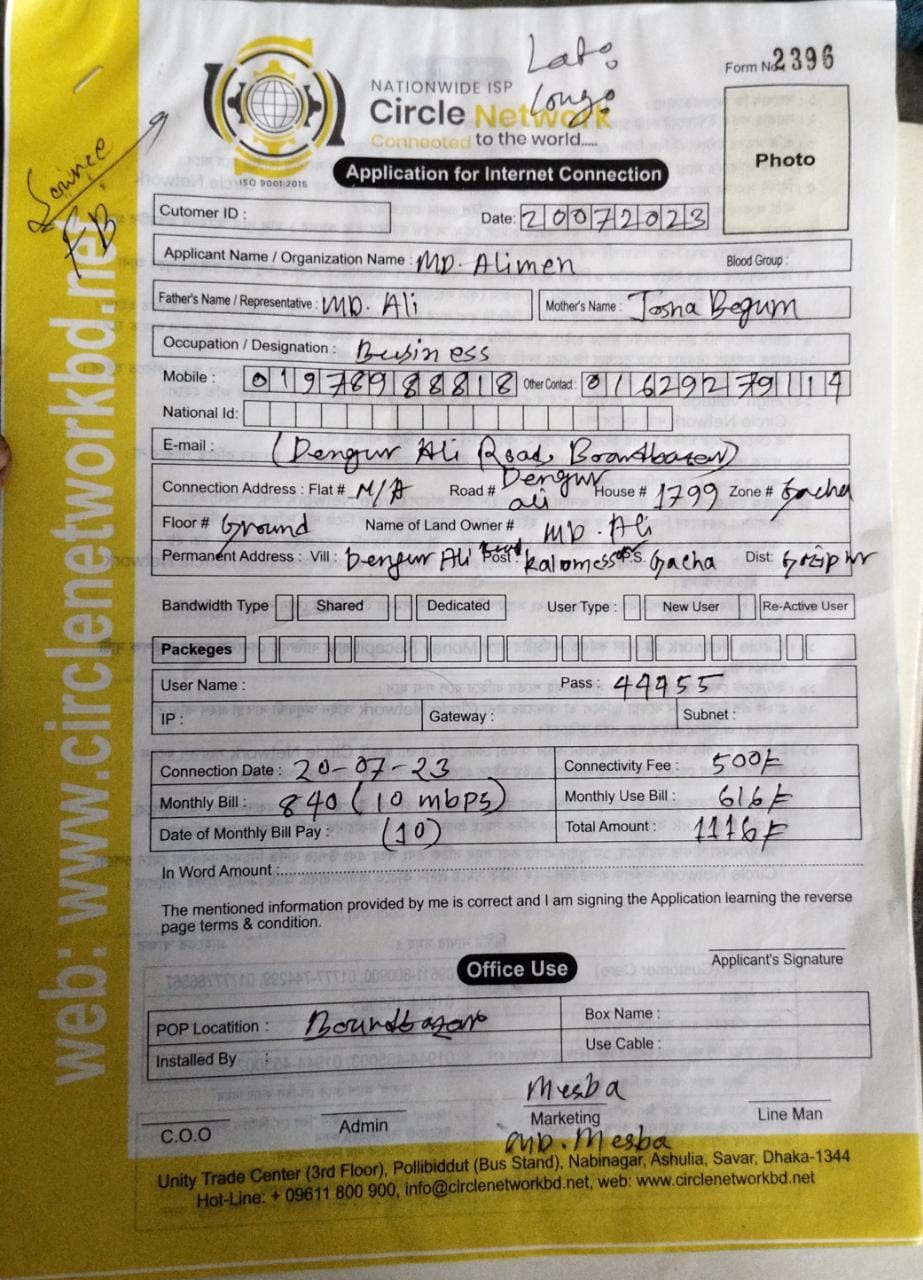 Lat:
Long:
Form No 2396
NATIONWIDE ISP
Circle Network
Connected to the world.....
ISO 9001:2015
Application for Internet Connection
Photo
FB
Cutomer ID :
Date: 20072023
Applicant Name / Organization Name : MD. Alimen Blood Group :
Father's Name / Representative : MD. Ali Mother's Name : Josna Begum
Occupation / Designation : Business
Mobile : 01978988818 Other Contact : 01629279114
National Id:
E-mail : (Dengur Ali Road, Boardbazar)
Connection Address : Flat # N/A Road # Dengur ali House # 1799 Zone # Gacha
Floor # Ground Name of Land Owner # MD. Ali
Permanent Address : Vill : Dengur Ali Road Post : P.S. Gacha Dist: Gazipur
Bandwidth Type Shared Dedicated User Type : New User Re-Active User
Packeges
User Name : Pass : 44955
IP : Gateway : Subnet :
Connection Date : 20-07-23 Connectivity Fee : 500/=
Monthly Bill : 840 (10 mbps) Monthly Use Bill : 616/=
Date of Monthly Bill Pay : (10) Total Amount : 1116/=
In Word Amount :
The mentioned information provided by me is correct and I am signing the Application learning the reverse
page terms & condition.
Applicant's Signature
Office Use
POP Locatition : Boardbazar Box Name :
Installed By : Use Cable :
Mesba
C.O.O Admin Marketing Line Man
MD. Mesba
Unity Trade Center (3rd Floor), Pollibiddut (Bus Stand), Nabinagar, Ashulia, Savar, Dhaka-1344
Hot-Line: + 09611 800 900, info@circlenetworkbd.net, web: www.circlenetworkbd.net
web: www.circlenetworkbd.net